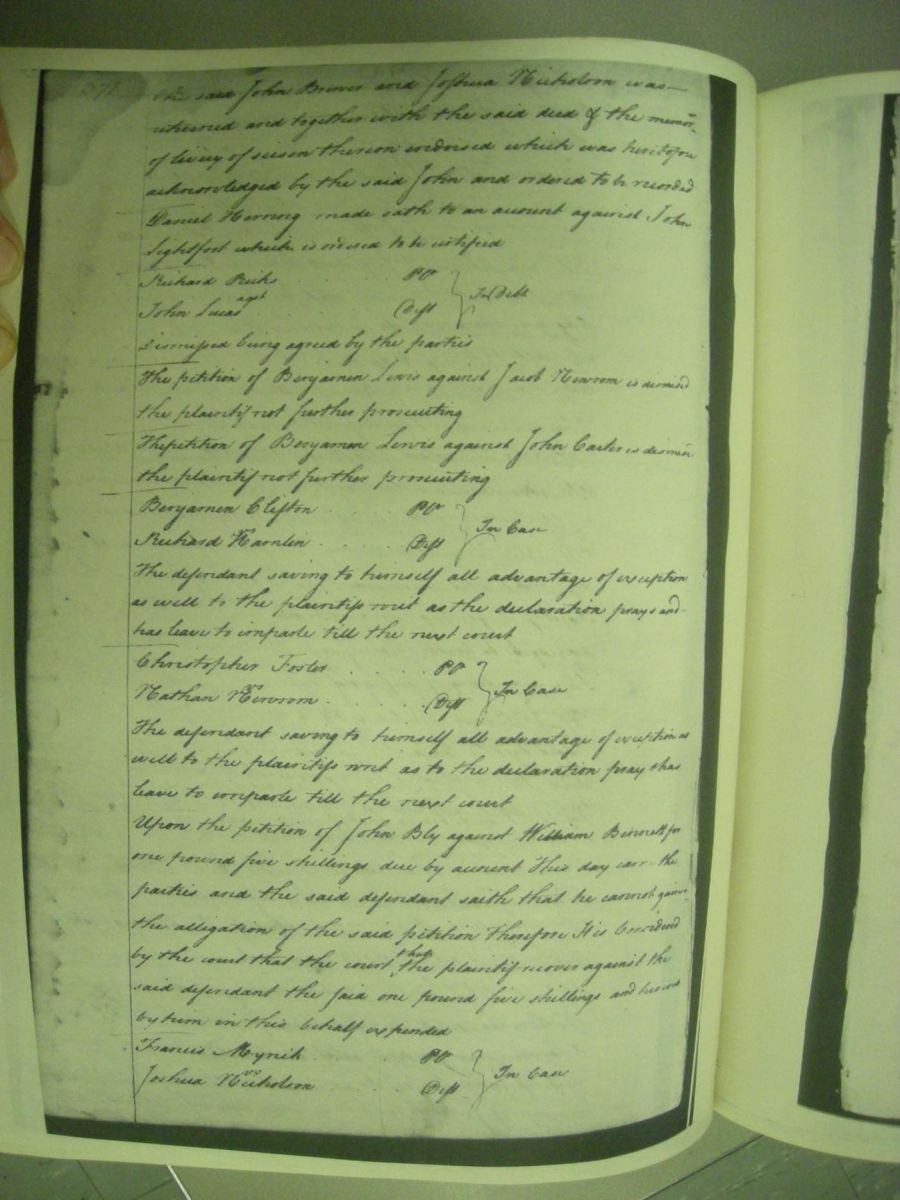 371
the said John Brewer and Joshua Nicholson was
returned and together with the said deed & the memor.
of livery of seisen thereon endorsed which was heretofore
acknowledged by the said John and ordered to be recorded
Daniel Herring made oath to an account against John
Lightfoot which is ordered to be certified
Richard Ricks Plt
agst In Debt
John Lucas Deft
dismissed being agreed by the parties
The petition of Benjamen Lewis against Jacob Newsom is dismised
the plaintif not further prosecuting
The petition of Benjamen Lewis against John Carter is dismisn
the plaintif not further prosecuting
Benjamen Clifton Plt
In Case
Richard Hamlin Deft
The defendant saving to himself all advantage of exception
as well to the plaintifs writ as the declaration prays and
has leave to imparle till the next court
Christopher Foster Plt
vs In Case
Nathan Newsom Deft
The defendant saving to himself all advantage of exception as
well to the plaintifs writ as to the declaration pray & has
leave to imparle till the next court
Upon the petition of John Bly against William Bennett for
one pound five shillings due by account This day came the
parties and the said defendant saith that he cannot gainsa
the alligation of the said petition Therefore It is Considered
by the court that the court that the plaintif recover against the
said defendant the said one pound five shillings and his cost
by him in this behalf expended
Francis Myrick Plt
vs In Case
Joshua Nicholson Deft